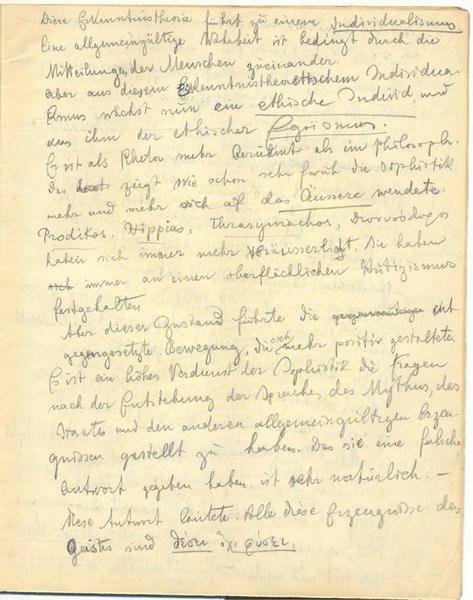 Diese Erkenntnistheorie führt zu einem Individualismus
Eine allgemeingültige Wahrheit ist bedingt durch die
Mitteilungen der Menschen zueinander.
aber aus diesem Erkenntnistheoretischem Individua-
lismus wächst nun ein ethische Individ. und
aus ihm der ethischer Egoismus.
Er ist als Rhetor mehr berühmt als ein Philosoph.
Das zeigt wie schon sehr früh die Sophistik
mehr und mehr sich auf das Äussere wendete.
Prodikos, Hippias, Thrasymachos,
haben sich immer mehr veräusserligt. Sie haben
sich immer an einen oberflächlichen
festgehalten
Aber dieser Zustand führte die ent
gegengesetzte Bewegung, die sich mehr positiv gestaltete.
Es ist ein hohes Verdienst der Sophistik die Fragen
nach der Entstehung der Sprache, des Mythus, des
Staates und den anderen allgemeingültigen Erzeu-
gnissen gestellt zu haben. Das sie eine falsche
Antwort gegeben haben, ist sehr natürlich. —
Diese Antwort lautete: Alle diese Erzeugnisse des
Geistes sind θέσει ὄχι φύσει.